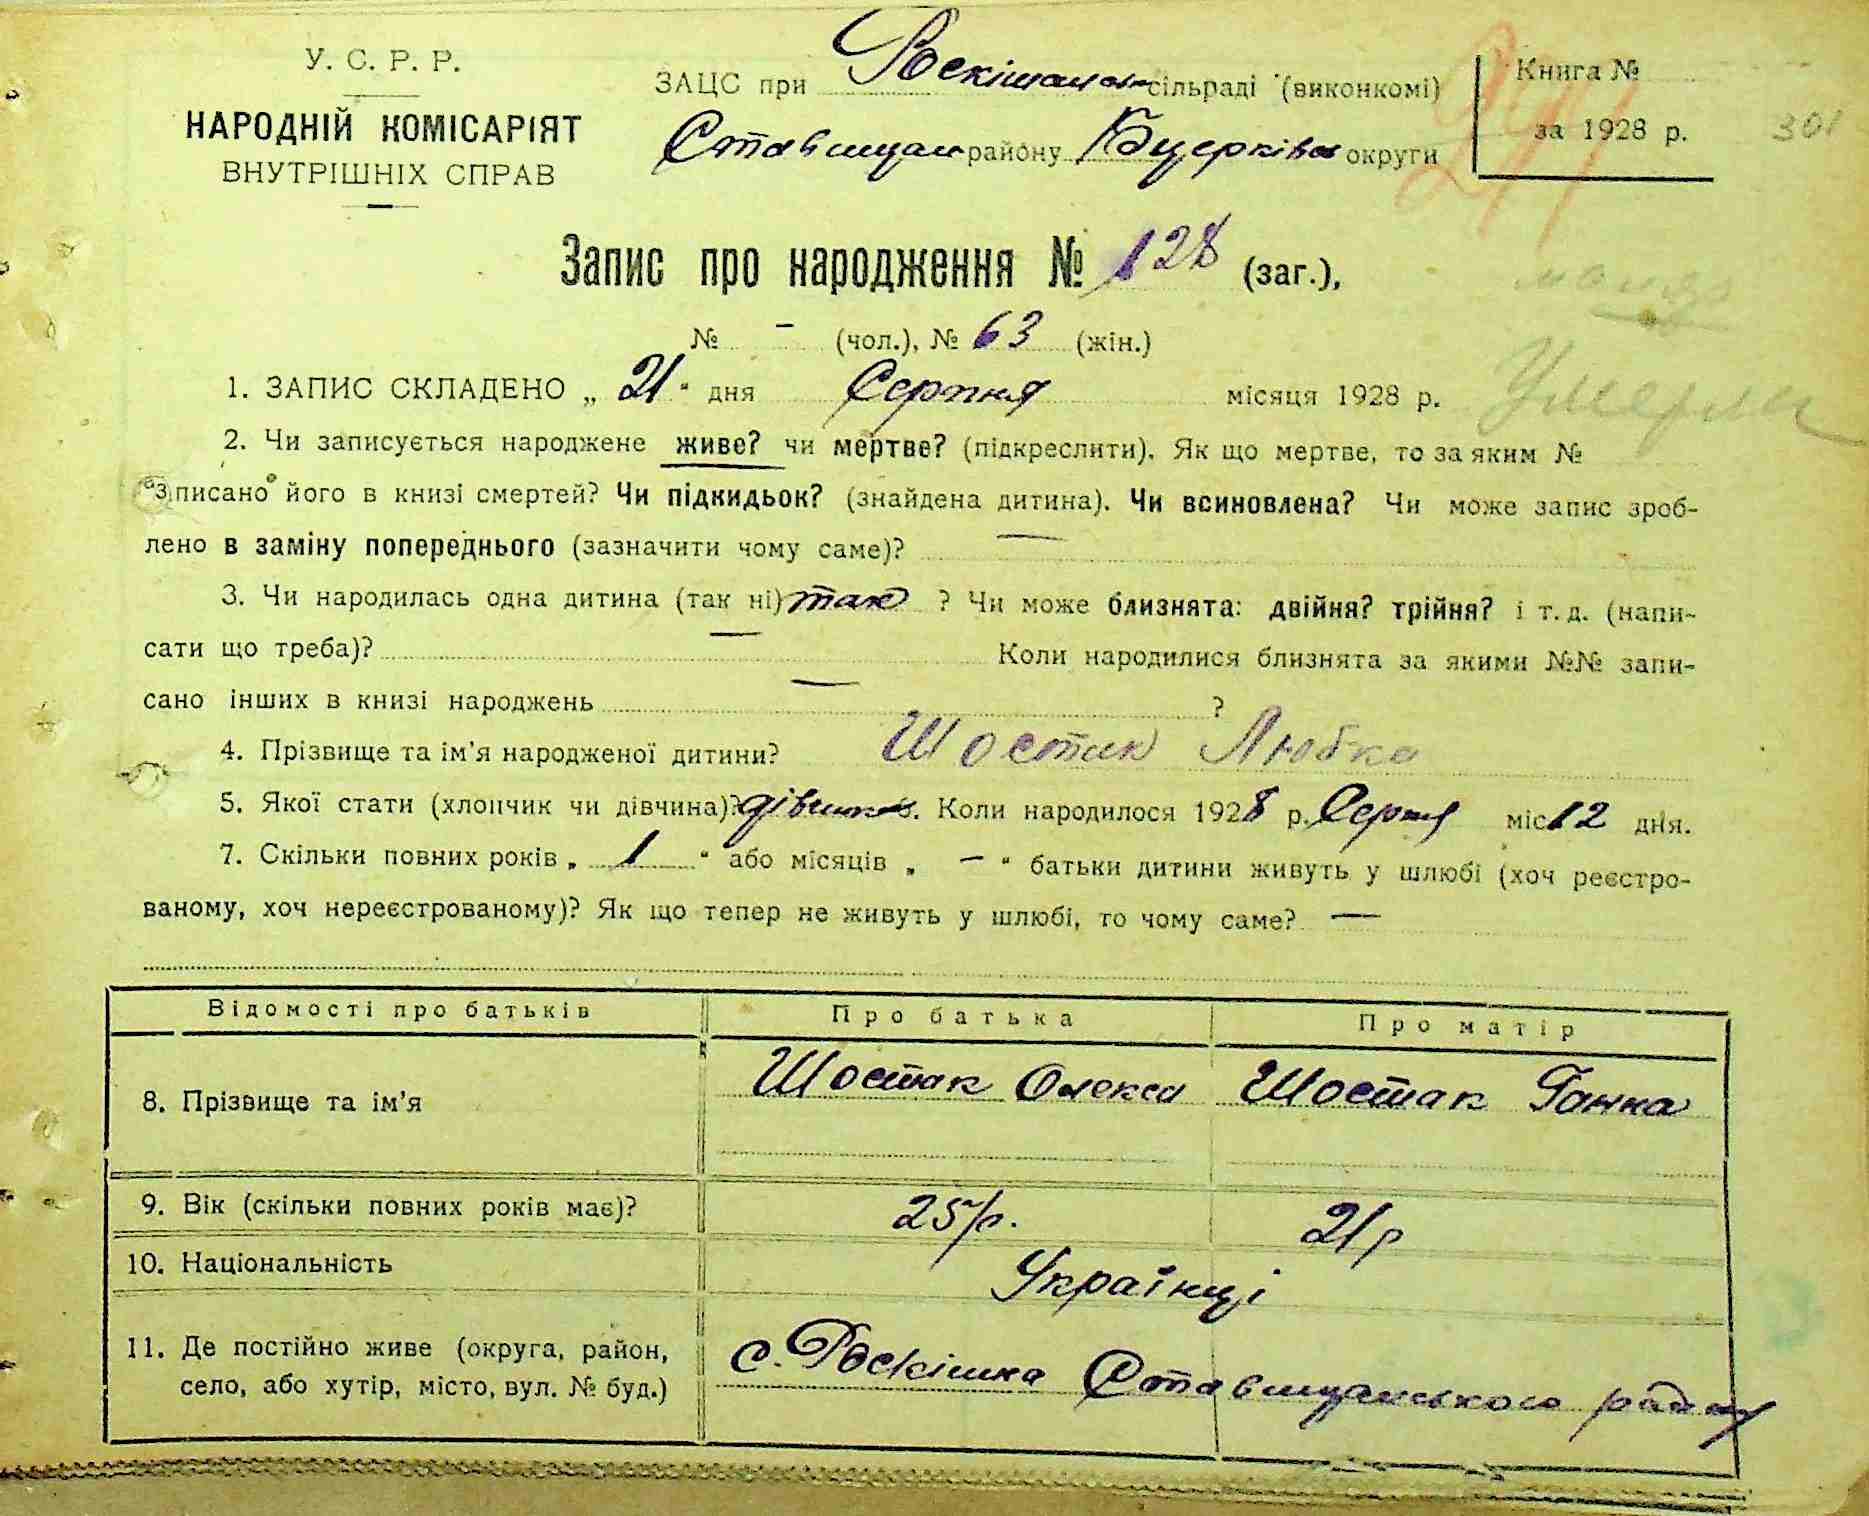 У. С. Р. Р.
НАРОДНІЙ КОМІСАРІЯТ
ВНУТРІШНІХ СПРАВ
ЗАЦС при Роскішанській сільраді (виконкомі)
Ставищан району Бцерківськ округи
Книга №
за 1928 р.
301
Запис про народження № 128 (заг.),
№ - (чол.), № 63 (жін.)
1. ЗАПИС СКЛАДЕНО „ 21 " дня Серпня місяця 1928 р.
Умерла
2. Чи записується народжене живе? чи мертве? (підкреслити). Як що мертве, то за яким №
записано його в книзі смертей? Чи підкидьок? (знайдена дитина). Чи всиновлена? Чи може запис зроб-
лено в заміну попереднього (зазначити чому саме)? —
3. Чи народилась одна дитина (так ні) так ? Чи може близнята: двійня? трійня? і т. д. (напи-
сати що треба)? — Коли народилися близнята за якими №№ запи-
сано інших в книзі народжень — ?
4. Прізвище та ім'я народженої дитини? Шостак Любка
5. Якої стати (хлопчик чи дівчина)? дівчинка. Коли народилося 1928 р. Серпня міс 12 дня.
7. Скільки повних років „ 1 " або місяців „ — " батьки дитини живуть у шлюбі (хоч реєстро-
ваному, хоч нереєстрованому)? Як що тепер не живуть у шлюбі, то чому саме? —
Відомості про батьків Про батька Про матір
8. Прізвище та ім'я Шостак Олекса Шостак Ганна
9. Вік (скільки повних років має)? 25/р. 21р
10. Національність Українці
11. Де постійно живе (округа, район,
село, або хутір, місто, вул. № буд.)
с. Роскішна Ставищанського району